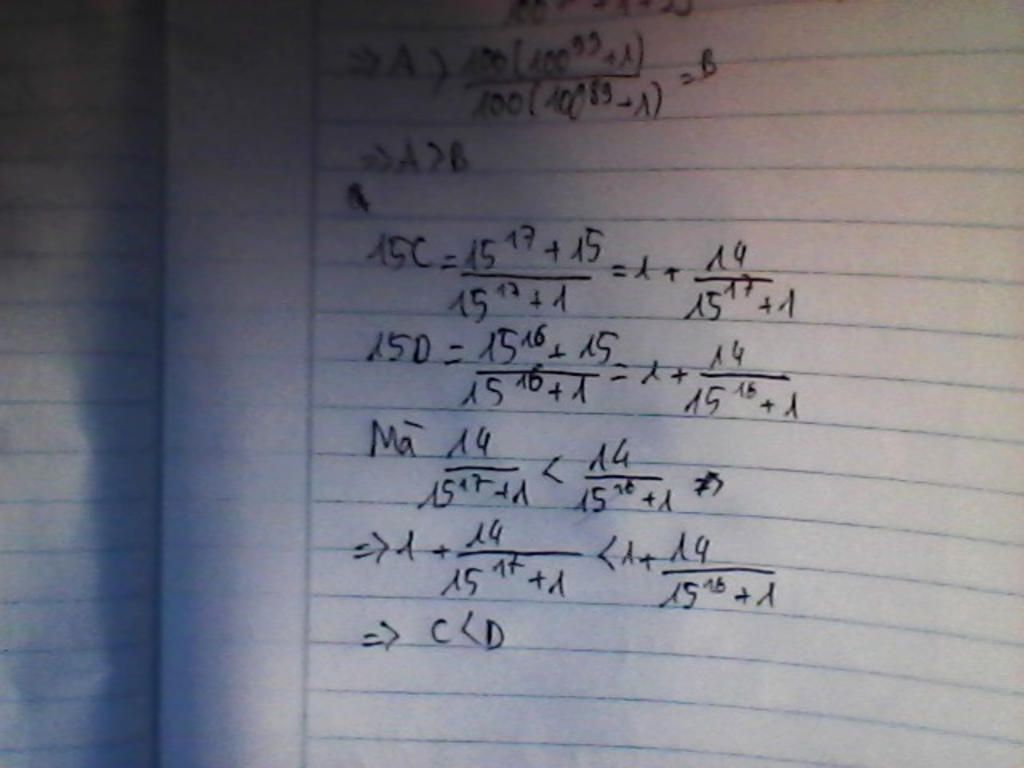 => A > 100(100^99+1)/100(100^89+1) = B
=> A > B
15C = 15^17+15/15^17+1 = 1 + 14/15^17+1
15D = 15^16+15/15^16+1 = 1 + 14/15^16+1
Mà 14/15^17+1 < 14/15^16+1 =>
=> 1 + 14/15^17+1 < 1 + 14/15^16+1
=> C < D